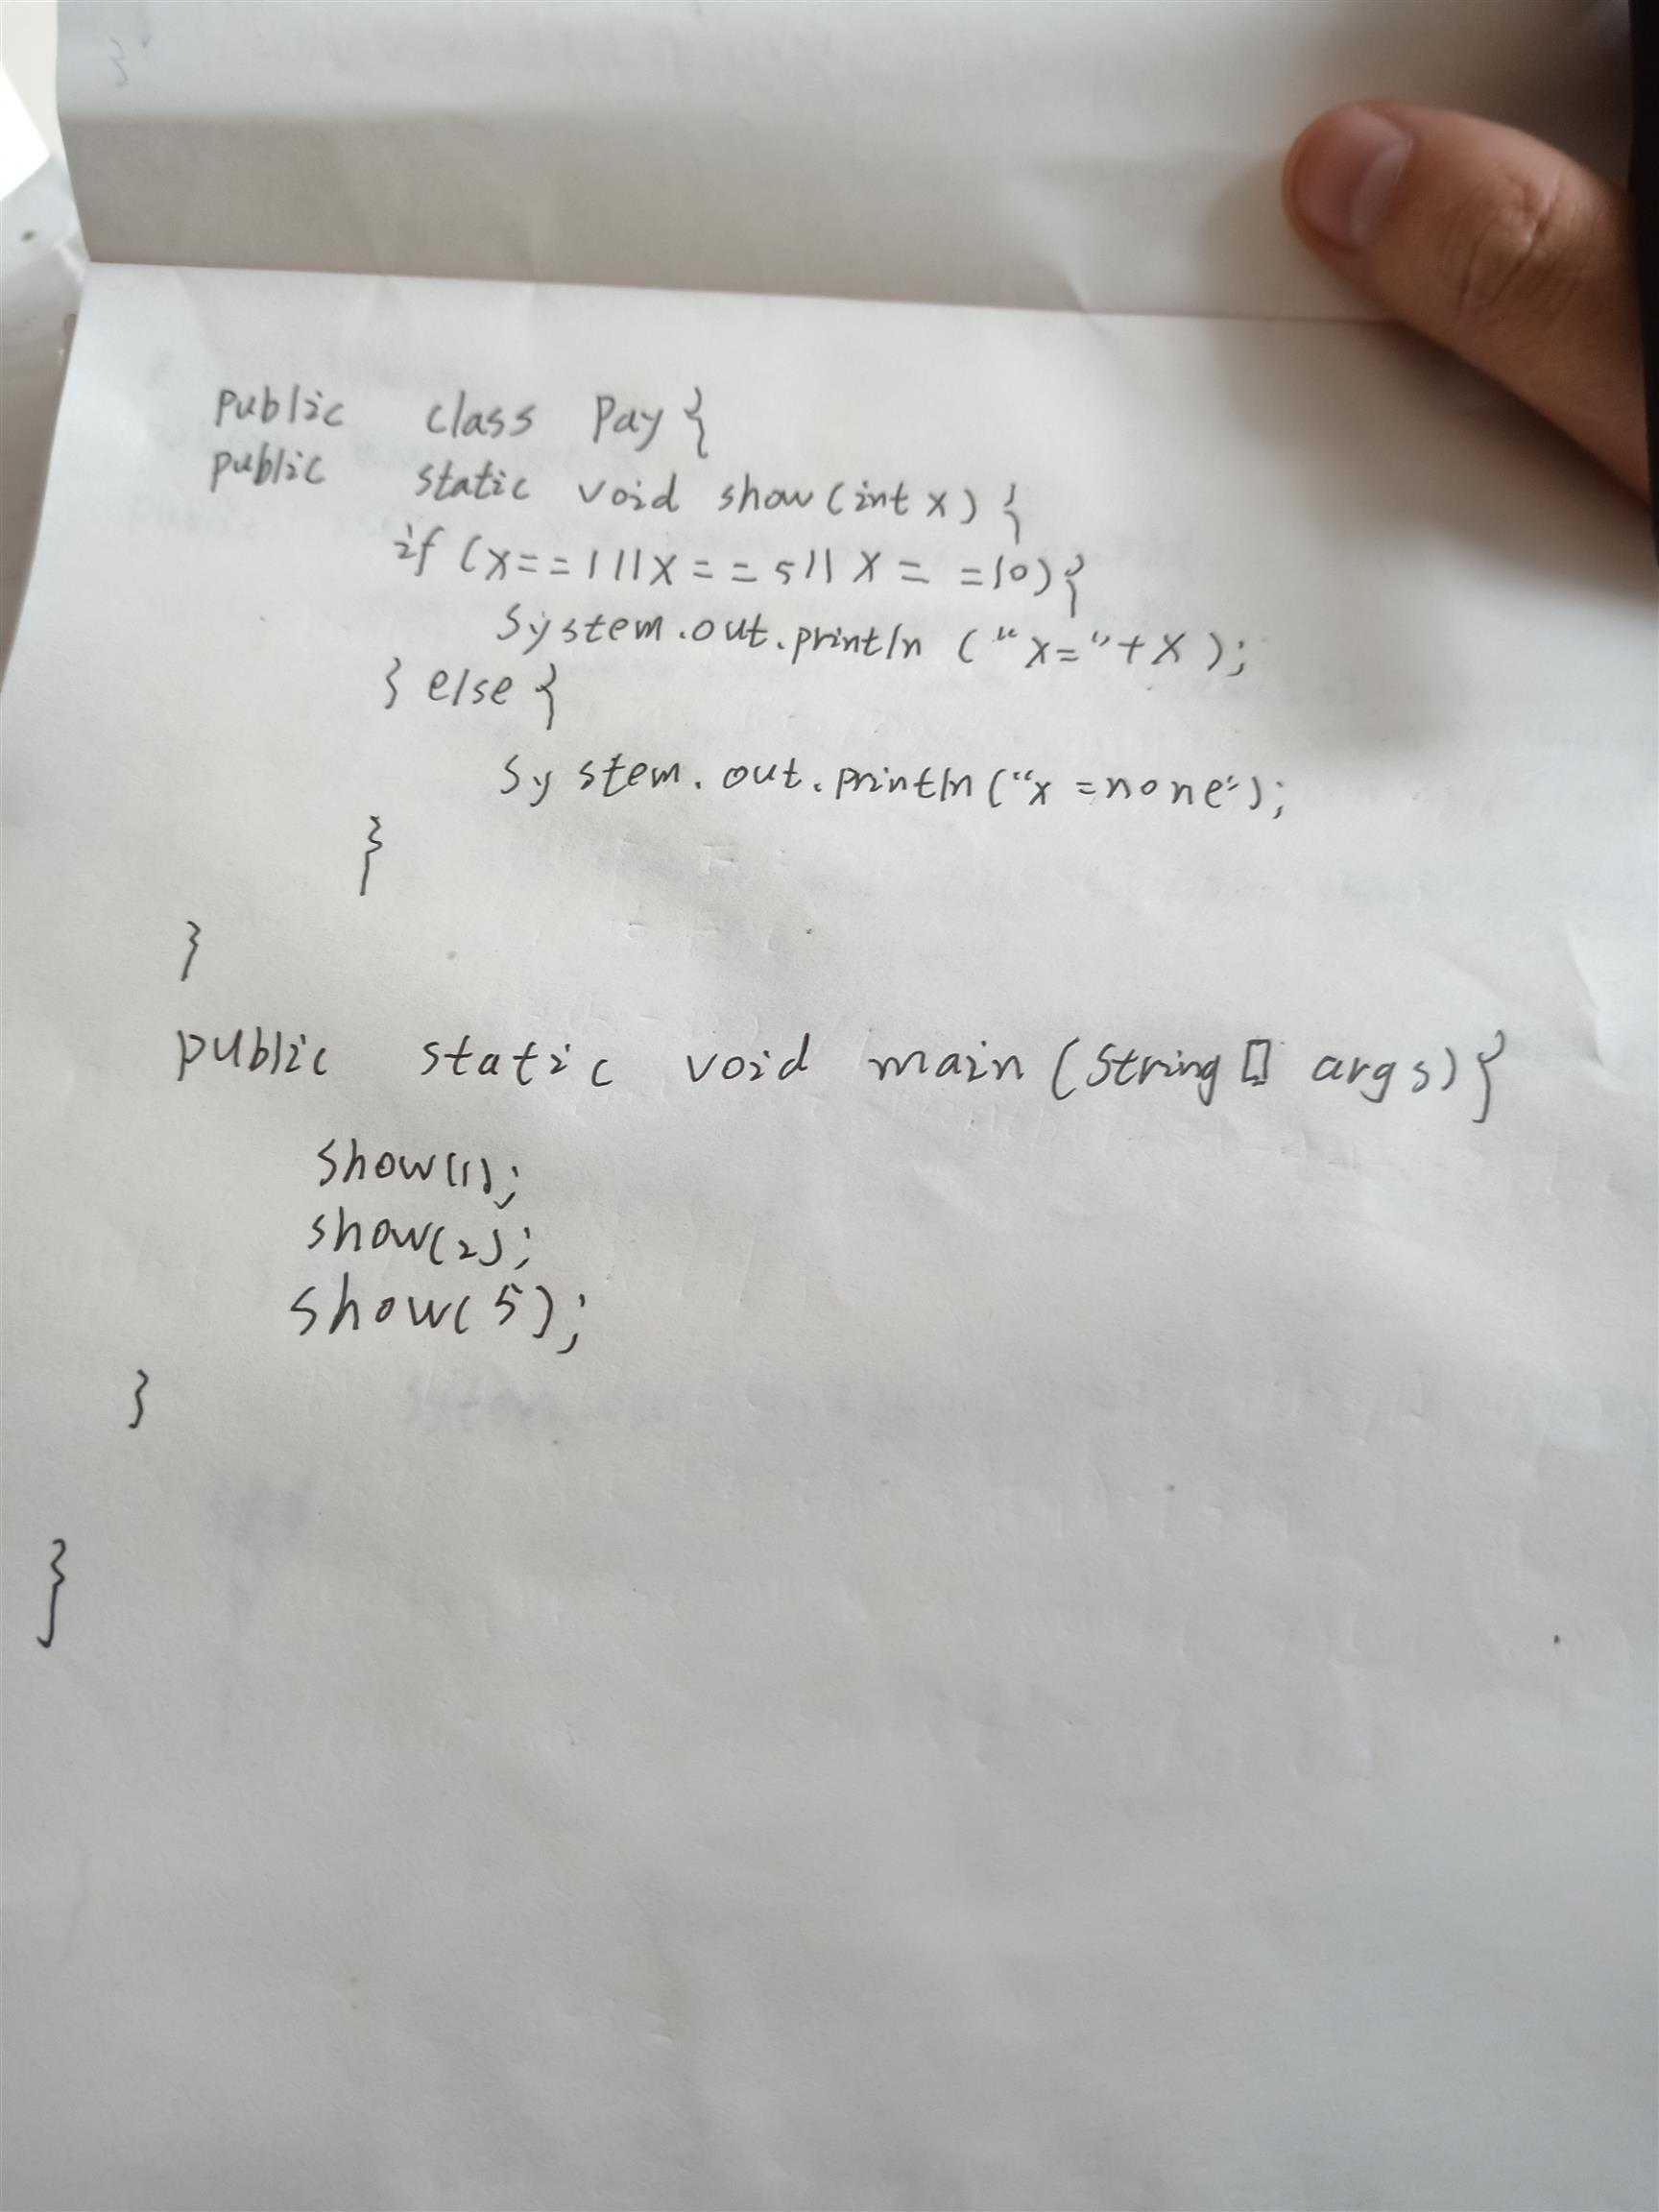 public class Pay{
public static void show(int x){
if (x==1||x==5||x= =10){
System.out.println ("x="+x);
} else {
System.out.println("x=none");
}
}
public static void main(String[] args){
show(1);
show(2);
show(5);
}
}